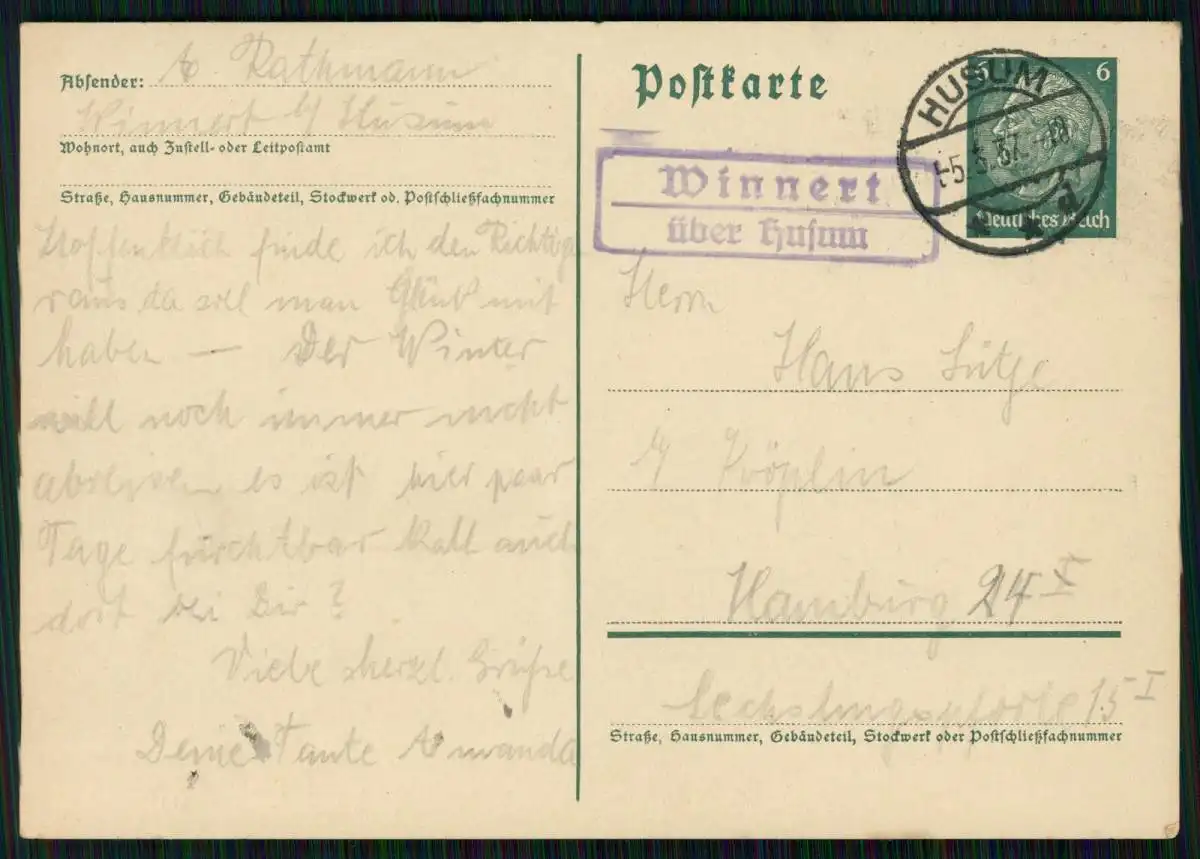 Absender: A. Rathmann
Winnert b/ Husum
Wohnort, auch Zustell- oder Leitpostamt
Straße, Hausnummer, Gebäudeteil, Stockwerk od. Postschließfachnummer
Hoffentlich finde ich den Richtige
raus da soll man Glück mit
haben — Der Winter
will noch immer nicht
abreisen es ist hier paar
Tage furchtbar kalt auch
dort bei Dir?
Viele herzl. Grüße
Deine Tante Amanda
Postkarte
6
Deutsches Reich
HUSUM
-5.3.37.-18
a
Winnert
über Husum
Herrn
Hans Lütge
b/ Kröplin
Hamburg 24 I
Lechslingspforte 15 I
Straße, Hausnummer, Gebäudeteil, Stockwerk oder Postschließfachnummer